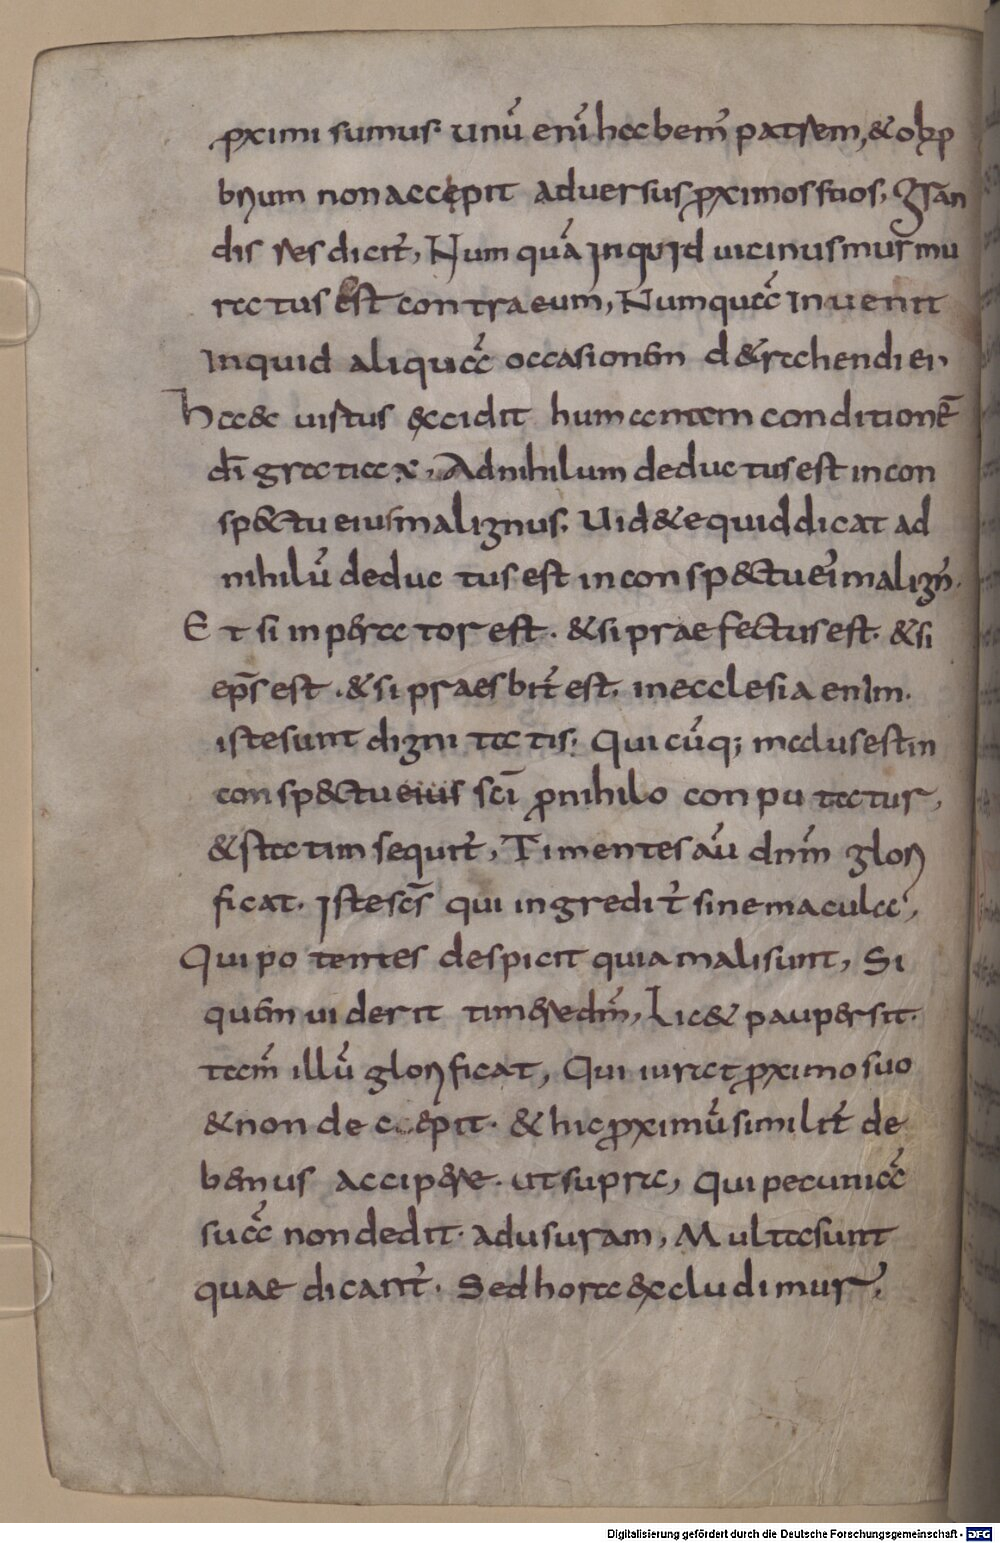 ꝓximi sumus. unū enī habem̄ patrem, & obp
brium non accepit adversus ꝓximos suos, Gran
dis res dicit̄, Num quā inquid vicinus murmu
ratus est contra eum, Numquā invenit
inquid aliquā occasionem detrahendi ei
Haec virtus excidit humanam conditionē
dī gratia x, Ad nihilum deductus est in con
spectu eius malignus. Videequid dicat ad
nihilū deductus est in conspectu eī malign̄.
Et si inperator est. & si praefectus est. & si
ep̄s est. & si praesbit̄ est. in ecclesia enim.
iste sunt dignitatis: Qui cūq; malus est in
conspectu eius scī ꝓ nihilo conputatur,
& statim sequit̄, Timentes aū dnm̄ glori
ficat. Iste sc̄s qui ingredit̄ sine macula,
Qui potentes despicit quia mali sunt, Si
quem viderit timere dm̄, Lic& pauper sit.
tam̄ illū glorificat, Qui iurat ꝓximo suo
& non decepit. & hic ꝓximū similit̄ de
bemus accipere. ut supra, qui pecuniā
suā non dedit. ad usuram, Multa sunt
quae dicant̄. Sed hora excludimur,
Digitalisierung gefördert durch die Deutsche Forschungsgemeinschaft - DFG